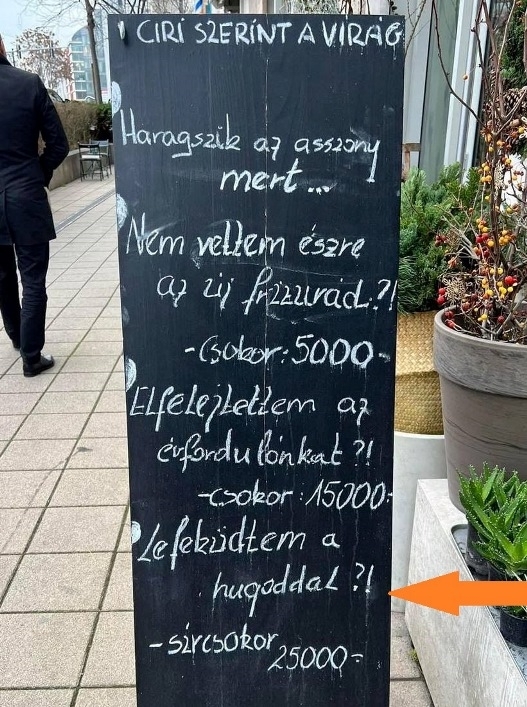 CIRI SZERINT A VIRÁG
Haragszik az asszony
mert...
Nem vettem észre
az új frizurád?!
-Csokor: 5000-
Elfelejtettem az
évfordulónkat?!
-csokor: 15000-
Lefeküdtem a
hugoddal?!
-sírcsokor 25000-